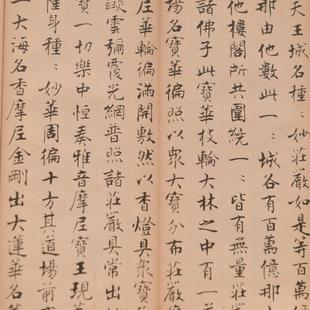 天王城名種〻妙莊嚴如是等百萬
那由他數此一〻城各有百萬億那
他樓閣所共圍繞一〻皆有無量莊
諸佛子此寶華枝輪大林之中有一
場名寶華徧照以衆大寶分布莊嚴
尼華輪徧滿開敷然以香燈具衆寶
燄雲彌覆光網普照諸莊嚴具常出
寶一切樂中恒奏雅音摩尼寶王現
惟身種〻妙華周徧十方其道場前
一大海名香摩尼金剛出大蓮華名